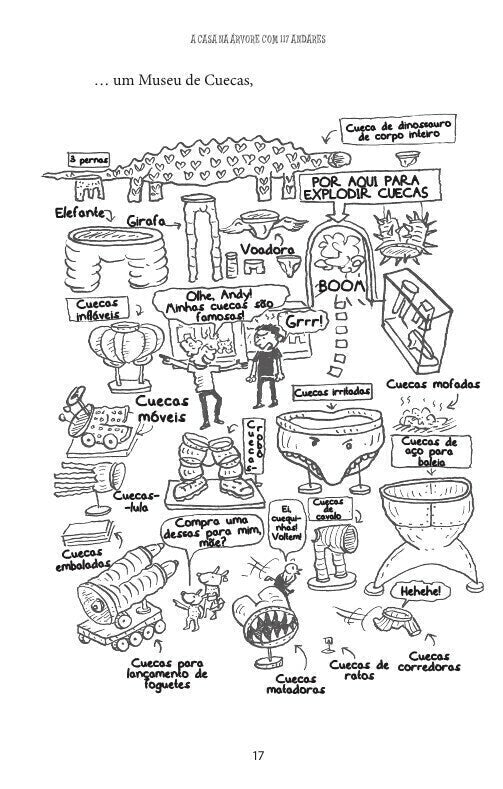 A CASA NA ÁRVORE COM 117 ANDARES
… um Museu de Cuecas,
Cueca de dinossauro
de corpo inteiro
3 pernas
POR AQUI PARA
EXPLODIR CUECAS
Elefante
Girafa
Voadora
BOOM
Cuecas
infláveis
Olhe, Andy!
Minhas cuecas são
famosas!
Grrr!
Cuecas mofadas
Cuecas irritadas
Cuecas
móveis
Cuecas-
robô
Cuecas de
aço para
baleia
Cuecas-
-lula
Compra uma
dessas para mim,
mãe?
Ei,
cuequi-
nhas!
Voltem!
Cuecas
de
cavalo
Cuecas
embaladas
Hehehe!
Cuecas para
lançamento de
foguetes
Cuecas
matadoras
Cuecas de
ratos
Cuecas
corredoras
17